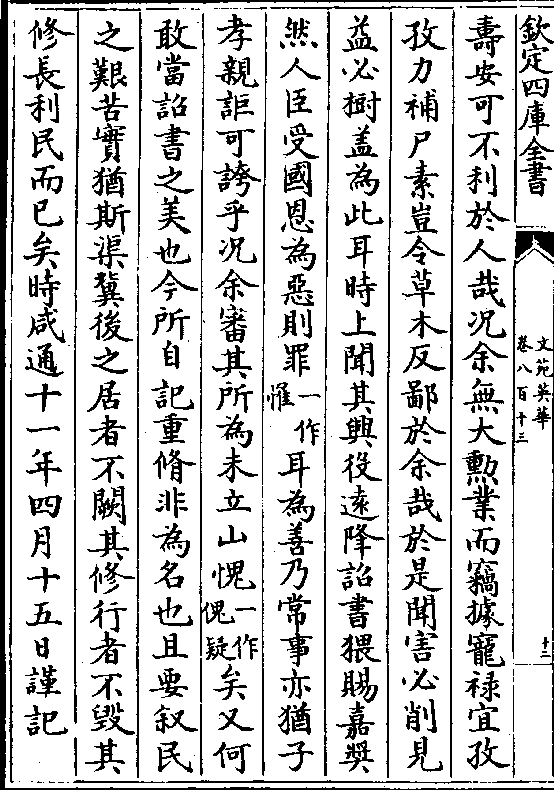 欽定四庫全書
文苑英華
卷八百十三
十三
壽安可不利於人哉况余無大勲業而竊據寵禄宜孜
孜力補尸素豈令草木反鄙於余哉於是聞害必削見
益必樹盖為此耳時上聞其興役逺降詔書猥賜嘉奨
然人臣受國恩為惡則罪一作惟耳為善乃常事亦猶子
孝親詎可誇乎况余審其所為未立山愧一作愧疑矣又何
敢當詔書之美也今所自記重脩非為名也且要叙民
之艱苦實猶斯渠冀後之居者不闕其修行者不毁其
修長利民而已矣時咸通十一年四月十五日謹記